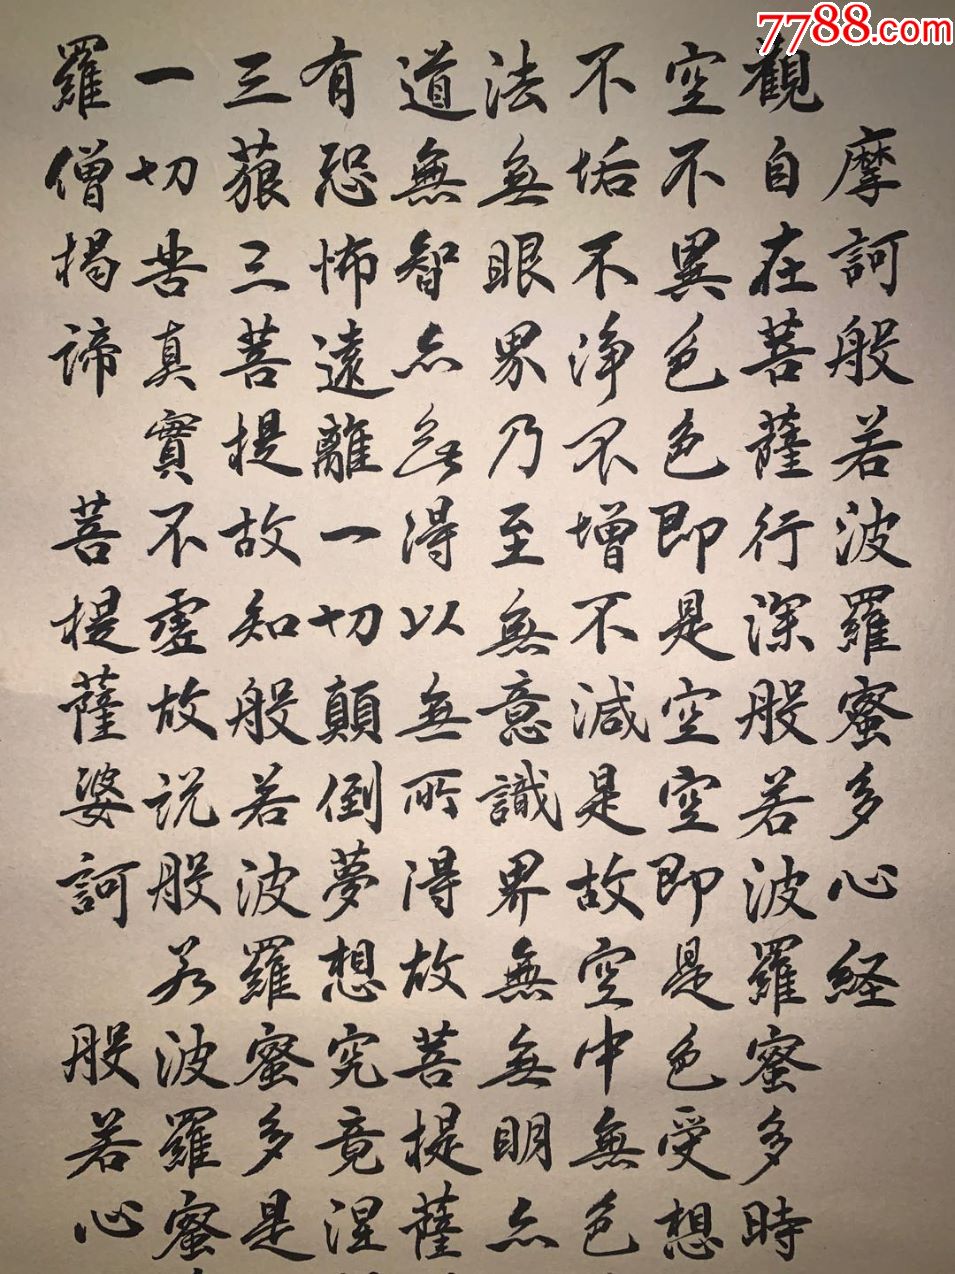 7788.com
摩訶般若波羅蜜多心経
觀自在菩薩行深般若波羅蜜多時
空不異色色即是空空即是色受想
不垢不淨不增不減是故空中無色
法無眼界乃至無意識界無無明亦
道無智亦無得以無所得故菩提薩
有恐怖遠離一切顛倒夢想究竟涅
三藐三菩提故知般若波羅蜜多是
一切苦真實不虛故説般若波羅蜜
羅僧揭諦 菩提薩婆訶 般若心